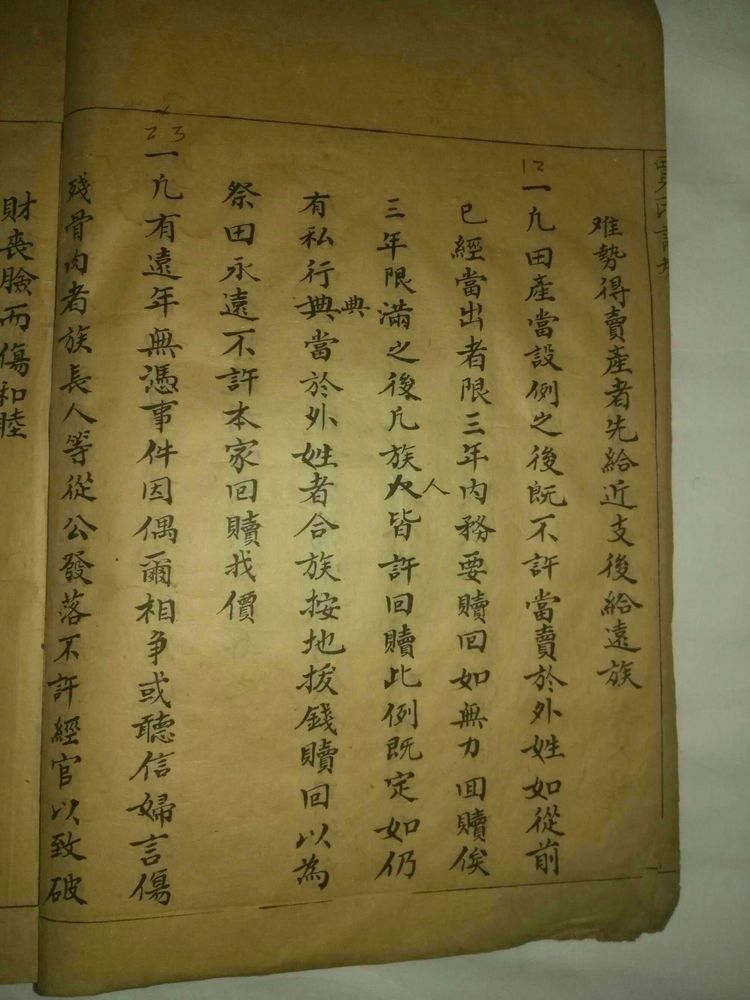 难勢得賣產者先給近支後給遠族
12
一凡田產當設例之後既不許當賣於外姓如從前
已經當出者限三年內務要贖回如無力回贖俟
三年限滿之後凡族人皆許回贖此例既定如仍
有私行典當於外姓者合族按地拔錢贖回以為
典
祭田永遠不許本家回贖找價
23
一凡有遠年無憑事件因偶爾相爭或聽信婦言傷
殘骨肉者族長人等從公發落不許經官以致破
財喪臉而傷和睦